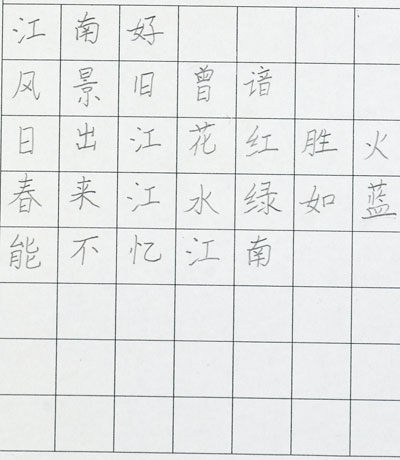 江南好
风景旧曾谙
日出江花红胜火
春来江水绿如蓝
能不忆江南